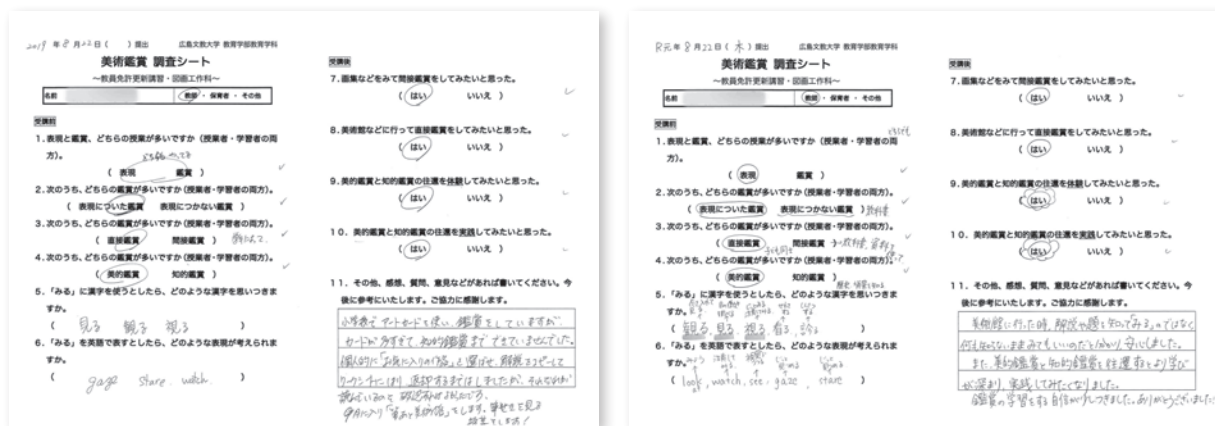 2019 年 8 月 22 日 ( ) 提出 広島文教大学 教育学部教育学科
美術鑑賞 調査シート
～教員免許更新講習・図画工作科～
名前 教師 ・ 保育者 ・ その他
受講前
1．表現と鑑賞、どちらの授業が多いですか（授業者・学習者の両
方）。
（ 表現 鑑賞 ）
2．次のうち、どちらの鑑賞が多いですか（授業者・学習者の両方）。
（ 表現についた鑑賞 表現につかない鑑賞 ）
3．次のうち、どちらの鑑賞が多いですか（授業者・学習者の両方）。
（ 直接鑑賞 間接鑑賞 ）
4．次のうち、どちらの鑑賞が多いですか（授業者・学習者の両方）。
（ 美的鑑賞 知的鑑賞 ）
5．「みる」に漢字を使うとしたら、どのような漢字を思いつきま
すか。
（ 見る 観る 視る ）
6．「みる」を英語で表すとしたら、どのような表現が考えられま
すか。
（ gaze stare. watch. ）
受講後
7．画集などをみて間接鑑賞をしてみたいと思った。
（ はい いいえ ）
8．美術館などに行って直接鑑賞をしてみたいと思った。
（ はい いいえ ）
9．美的鑑賞と知的鑑賞の往還を体験してみたいと思った。
（ はい いいえ ）
10．美的鑑賞と知的鑑賞の往還を実践してみたいと思った。
（ はい いいえ ）
11．その他、感想、質問、意見などがあれば書いてください。今
後に参考にいたします。ご協力に感謝します。
小学校で アートカードを使い、鑑賞をしていますが、
カードが多すぎて、知的鑑賞まで できていませんでした。
個人的に「お気に入りの作品」を選ばせ、解説をコピーして
ワークシートにはり
R元 年 8 月 22 日 ( 木 ) 提出 広島文教大学 教育学部教育学科
美術鑑賞 調査シート
～教員免許更新講習・図画工作科～
名前 教師 ・ 保育者 ・ その他
受講前
1．表現と鑑賞、どちらの授業が多いですか（授業者・学習者の両
方）。
（ 表現 鑑賞 ）
2．次のうち、どちらの鑑賞が多いですか（授業者・学習者の両方）。
（ 表現についた鑑賞 表現につかない鑑賞 ） 教科書
3．次のうち、どちらの鑑賞が多いですか（授業者・学習者の両方）。
（ 直接鑑賞 間接鑑賞 ）
4．次のうち、どちらの鑑賞が多いですか（授業者・学習者の両方）。
（ 美的鑑賞 知的鑑賞 ）
5．「みる」に漢字を使うとしたら、どのような漢字を思いつきま
すか。
（ 観る 見る 視る 看る 診る ）
6．「みる」を英語で表すとしたら、どのような表現が考えられま
すか。
（ look, watch, see, gaze, stare ）
受講後
7．画集などをみて間接鑑賞をしてみたいと思った。
（ はい いいえ ）
8．美術館などに行って直接鑑賞をしてみたいと思った。
（ はい いいえ ）
9．美的鑑賞と知的鑑賞の往還を体験してみたいと思った。
（ はい いいえ ）
10．美的鑑賞と知的鑑賞の往還を実践してみたいと思った。
（ はい いいえ ）
11．その他、感想、質問、意見などがあれば書いてください。今
後に参考にいたします。ご協力に感謝します。
美術館に行った時、解説や題を知って「みる」のではなく
何も知らないままみてもいいのだとわかり、安心しました。
また、美的鑑賞と知的鑑賞を往還するとより学び
が深まり、実践してみたくなりました。
鑑賞の学習をする自信が少しつきました。ありがとうございました。